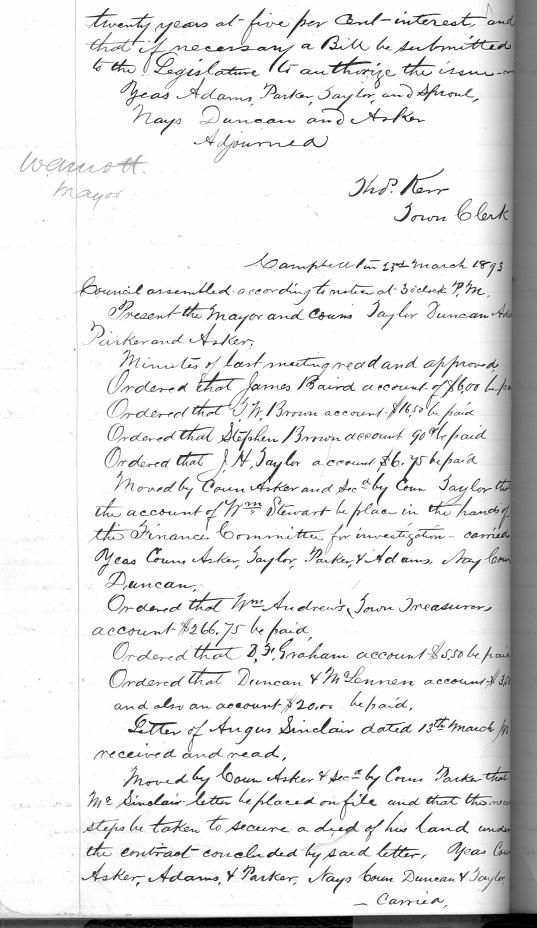 twenty years at five per cent interest, and
that if necessary a Bill be submitted
to the Legislature to authorize the issue
Yeas Adams, Parker, Taylor, and Sproul,
Nays Duncan and Asker
Adjourned
Mayor
Thos. Kerr
Town Clerk
Campbellton 23rd March 1893
Council assembled according to notice at 3 oclock P.M.
Present the Mayor and Couns Taylor Duncan
Parker and Asker,
Minutes of last meeting read and approved
Ordered that James Baird account of $6.00 be
Ordered that W. Brown account $16.50 be paid
Ordered that Stephen Brown account 90cts be paid
Ordered that J. H. Taylor account $6.75 be paid
Moved by Coun Asker and Secd by Coun Taylor
the account of Wm Stewart be place in the hands of
the Finance Committee for investigation - carried
Yeas Couns Asker, Taylor, Parker & Adams, Nay Coun
Duncan,
Ordered that Wm Andrew's, Town Treasurers
account $266.75 be paid,
Ordered that Graham account $5.50 be paid
Ordered that Duncan & McLennen account
and also an account $20.00 be paid,
Letter of Angus Sinclair dated 13th March
received and read,
Moved by Coun Asker & Secd by Coun Parker that
Mr Sinclair letter be placed on file and that the
steps be taken to secure a deed of his land under
the contract concluded by said letter, Yeas
Asker, Adams, & Parker, Nays Coun Duncan & Taylor
- Carried,